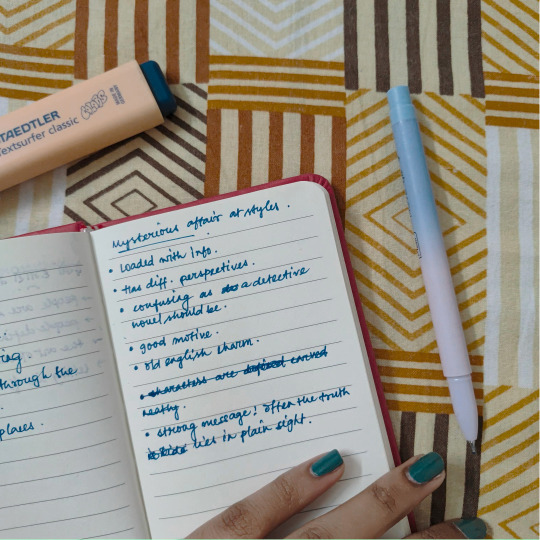 STAEDTLER
textsurfer classic
through the
places.
Mysterious affair at styles.
• Loaded with info.
• Has diff. perspectives.
• confusing as a detective
novel should be.
• good motive.
• old english charm.
• characters are carved
neatly.
• strong message! often the truth
lies in plain sight.